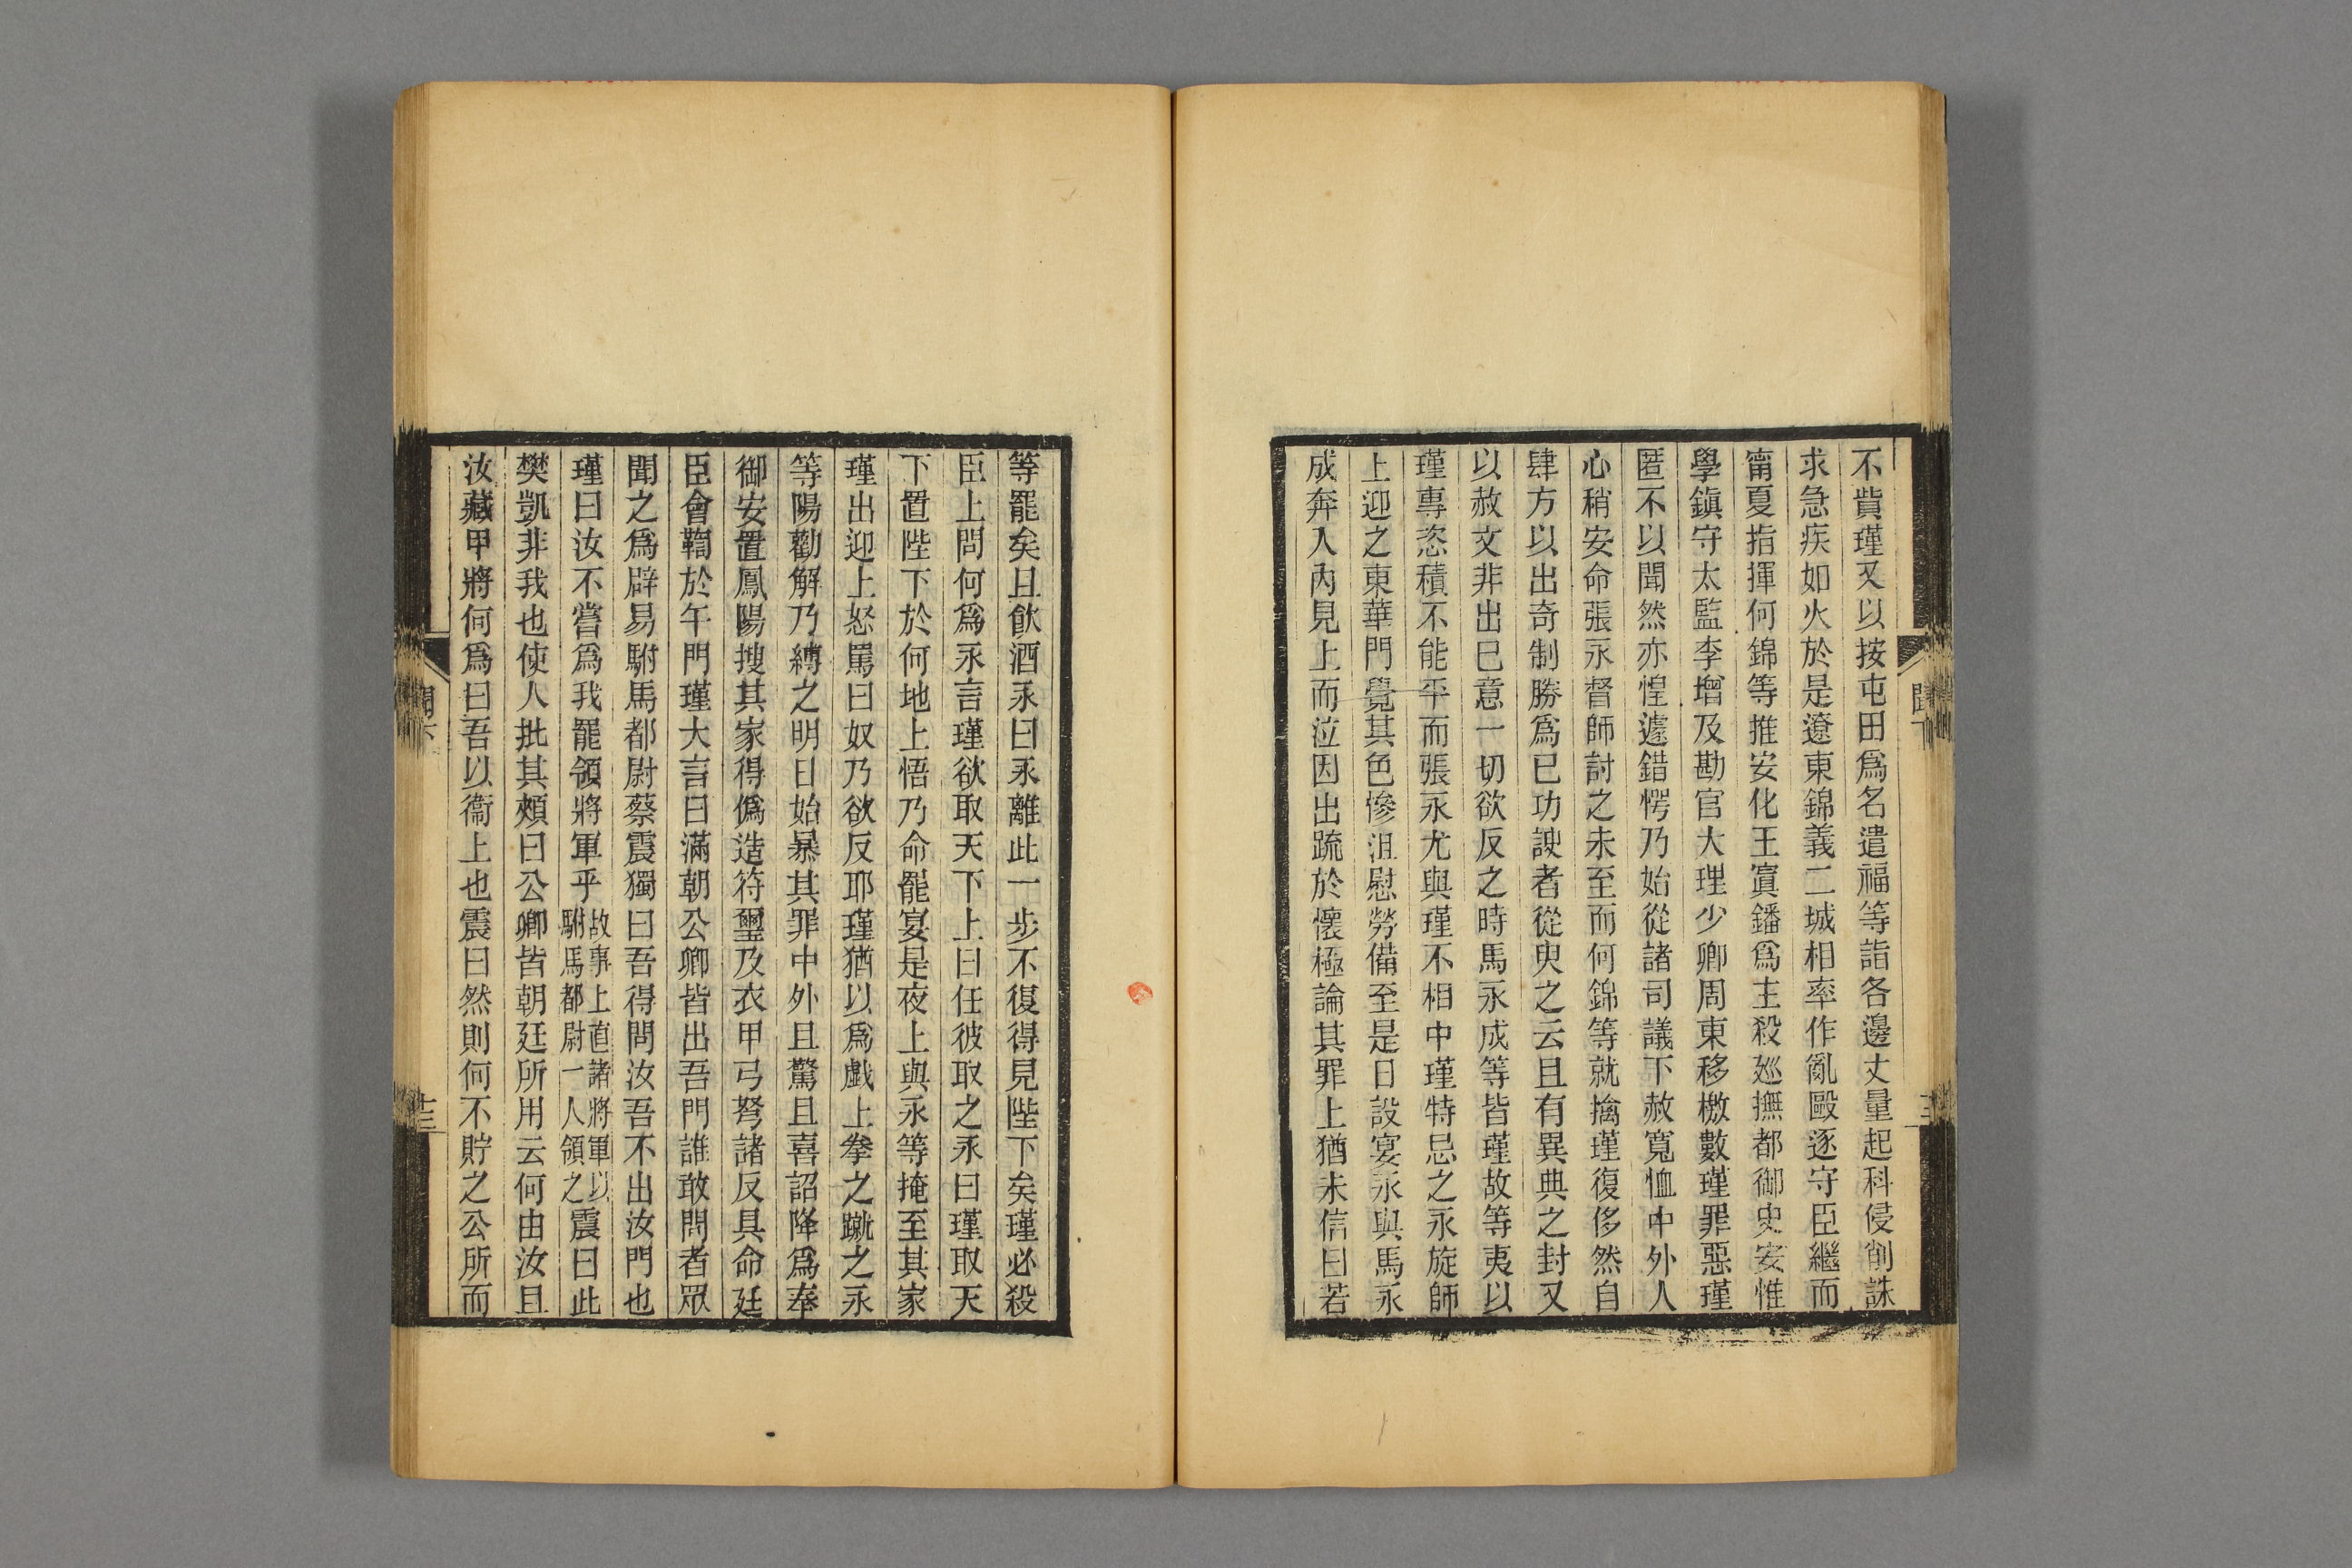 不貲瑾又以按屯田爲名遣福等詣各邊丈量起科侵削誅
求急疾如火於是遼東錦義二城相率作亂毆逐守臣繼而
甯夏指揮何錦等推安化王寘鐇爲主殺廵撫都御史安惟
學鎭守太監李增及勘官大理少卿周東移檄數瑾罪惡瑾
匿不以聞然亦惶遽錯愕乃始從諸司議下赦寬恤中外人
心稍安命張永督師討之未至而何錦等就擒瑾復侈然自
肆方以出奇制勝爲已功諛者從臾之云且有異典之封又
以赦文非出已意一切欲反之時馬永成等皆瑾故等夷以
瑾專恣積不能平而張永尤與瑾不相中瑾特忌之永旋師
上迎之東華門覺其色慘沮慰勞備至是日設宴永與馬永
成奔入內見上而泣因出疏於懷極論其罪上猶未信曰若
等罷矣且飲酒永曰永離此一步不復得見陛下矣瑾必殺
臣上問何爲永言瑾欲取天下上曰任彼取之永曰瑾取天
下置陛下於何地上悟乃命罷宴是夜上與永等掩至其家
瑾出迎上怒罵曰奴乃欲反耶瑾猶以爲戱上拳之蹴之永
等陽勸解乃縛之明日始暴其罪中外且驚且喜詔降爲奉
御安置鳳陽搜其家得僞造符璽及衣甲弓弩諸反具命廷
臣會鞫於午門瑾大言曰滿朝公卿皆出吾門誰敢問者眾
聞之爲辟易駙馬都尉蔡震獨曰吾得問汝吾不出汝門也
瑾曰汝不嘗爲我罷領將軍乎故事上直諸將軍以駙馬都尉一人領之震曰此
樊凱非我也使人批其頰曰公卿皆朝廷所用云何由汝且
汝藏甲將何爲曰吾以衞上也震曰然則何不貯之公所而